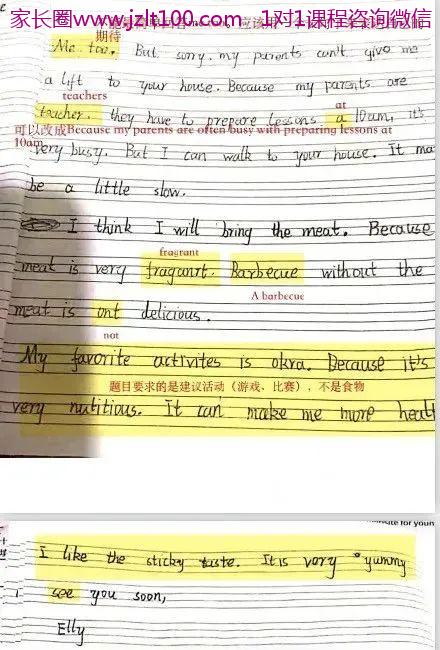 家长圈www.jzlt100.com，1对1课程咨询微信
期待
Me. too. But sorry. my parents can't give me
a lift to your house. Because my parents are
teachers
teacher. they have to prepare lessons a 10am, it's
at
可以改成Because my parents are often busy with preparing lessons at
10am
very busy. But I can walk to your house. It ma
be a little slow.
I think I will bring the meat. Because
fragrant
meat is very fraganrt. Barbecue without the
A barbecue
meat is ont delicious.
not
My favorite activites is okra. Because it's
题目要求的是建议活动（游戏、比赛），不是食物
very nutitious. It can make me more healt
I like the sticky taste. It is very yummy
see you soon,
Elly